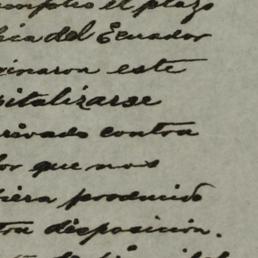 cumplió el plazo
lica del Ecuador
ginaron este
pitalizarse
rivado contra
lor que nos
biera producido
tra disposicion.